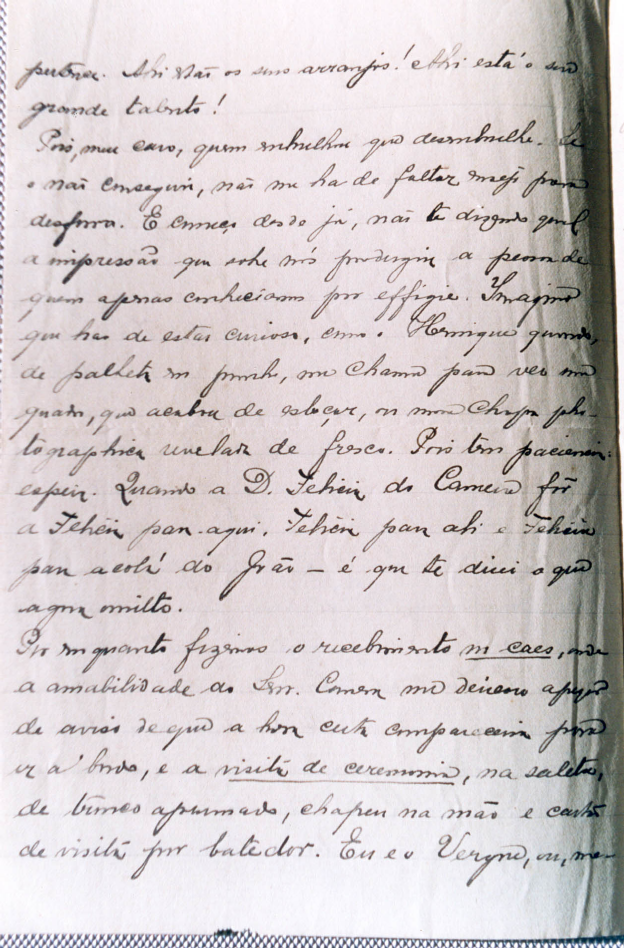 Ahi vão os seus arranjos! Ahi está o seu
grande talento!
Pois, meu caro, quem embrulhou que desembrulhe. Se
o não conseguir, não me ha de faltar ensejo para
desforra. E começo desde já, não te dizendo qual
a impressão que sobre nós produziu a pessoa de
quem apenas conheciamos por effigie. Imagino
que has de estar curioso, como o Henrique quando,
de palheta em punho, me chama para ver um
quadro, que acabou de esboçar, ou uma chapa pho-
tographica revelada de fresco. Pois tem paciencia:
espera. Quando a D. Felicia do Carneiro fôr
a Felicia para aqui, Felicia para ahi e Felicia
para acolá do João — é que te direi o que
agora omitto.
Por emquanto fizemos o recebimento no caes, onde
a amabilidade do Snr. me deixou apezar
de aviso de que a hora certa compareceria para
ir a bordo, e a visita de ceremonia, na saleta,
de tronco aprumado, chapeu na mão e cartão
de visita por batedor. Eu e o Vergne, ou, me-